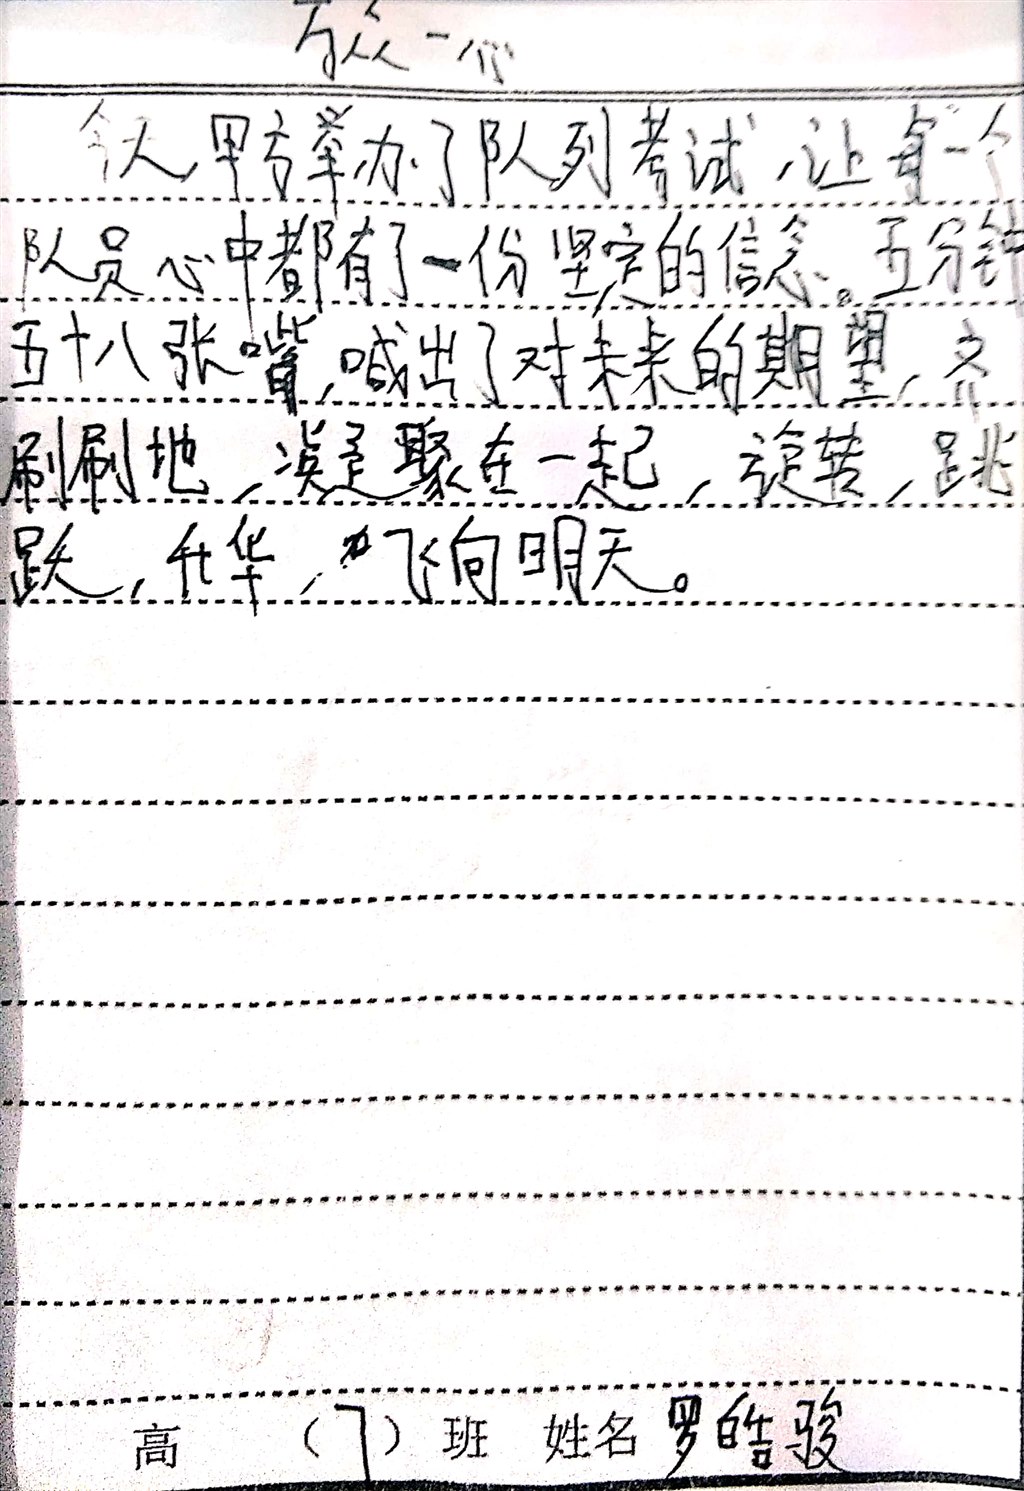 万众一心
今天，甲方举办了队列考试，让每一个
队员心中都有了一份坚定的信念。五分钟
五十八张嘴，喊出了对未来的期望，齐
刷刷地，凝聚在一起，旋转，跳
跃，升华，飞向明天。
高 （7）班 姓名 罗皓骏